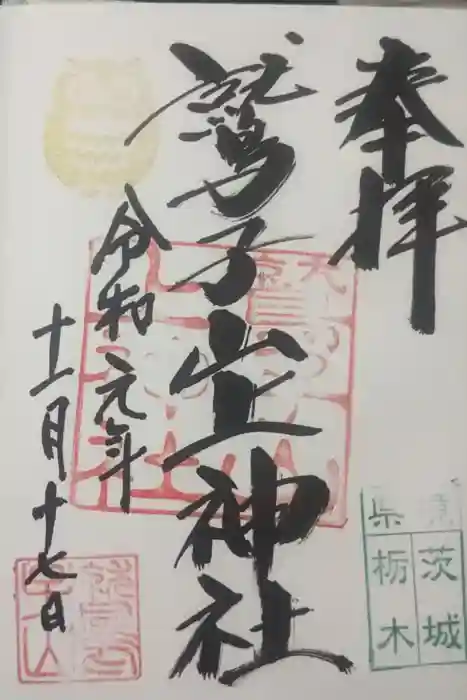 奉拝
鷲子山上神社
令和元年
十一月十七日
茨城県
栃木県